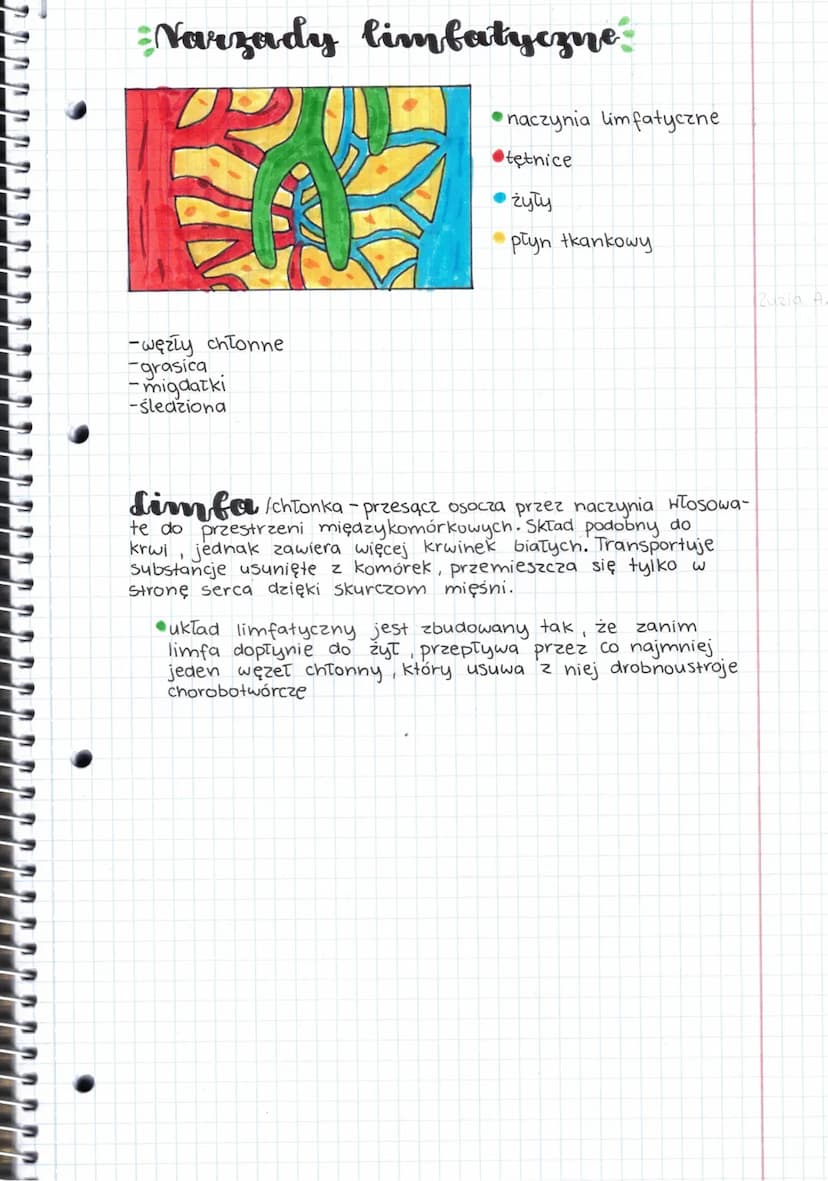 Narządy limfatyczne
naczynia limfatyczne
tętnice
żyły
płyn tkankowy
Zuzia A.
-węzły chłonne
-grasica
-migdałki
-śledziona
Limfa /chłonka - przesącz osocza przez naczynia włosowa-
te do przestrzeni międzykomórkowych. Skład podobny do
krwi, jednak zawiera więcej krwinek białych. Transportuje
substancje usunięte z komórek, przemieszcza się tylko w
stronę serca dzięki skurczom mięśni.
układ limfatyczny jest zbudowany tak, że zanim
limfa dopłynie do żył, przepływa przez co najmniej
jeden węzeł chłonny, który usuwa z niej drobnoustroje
chorobotwórcze